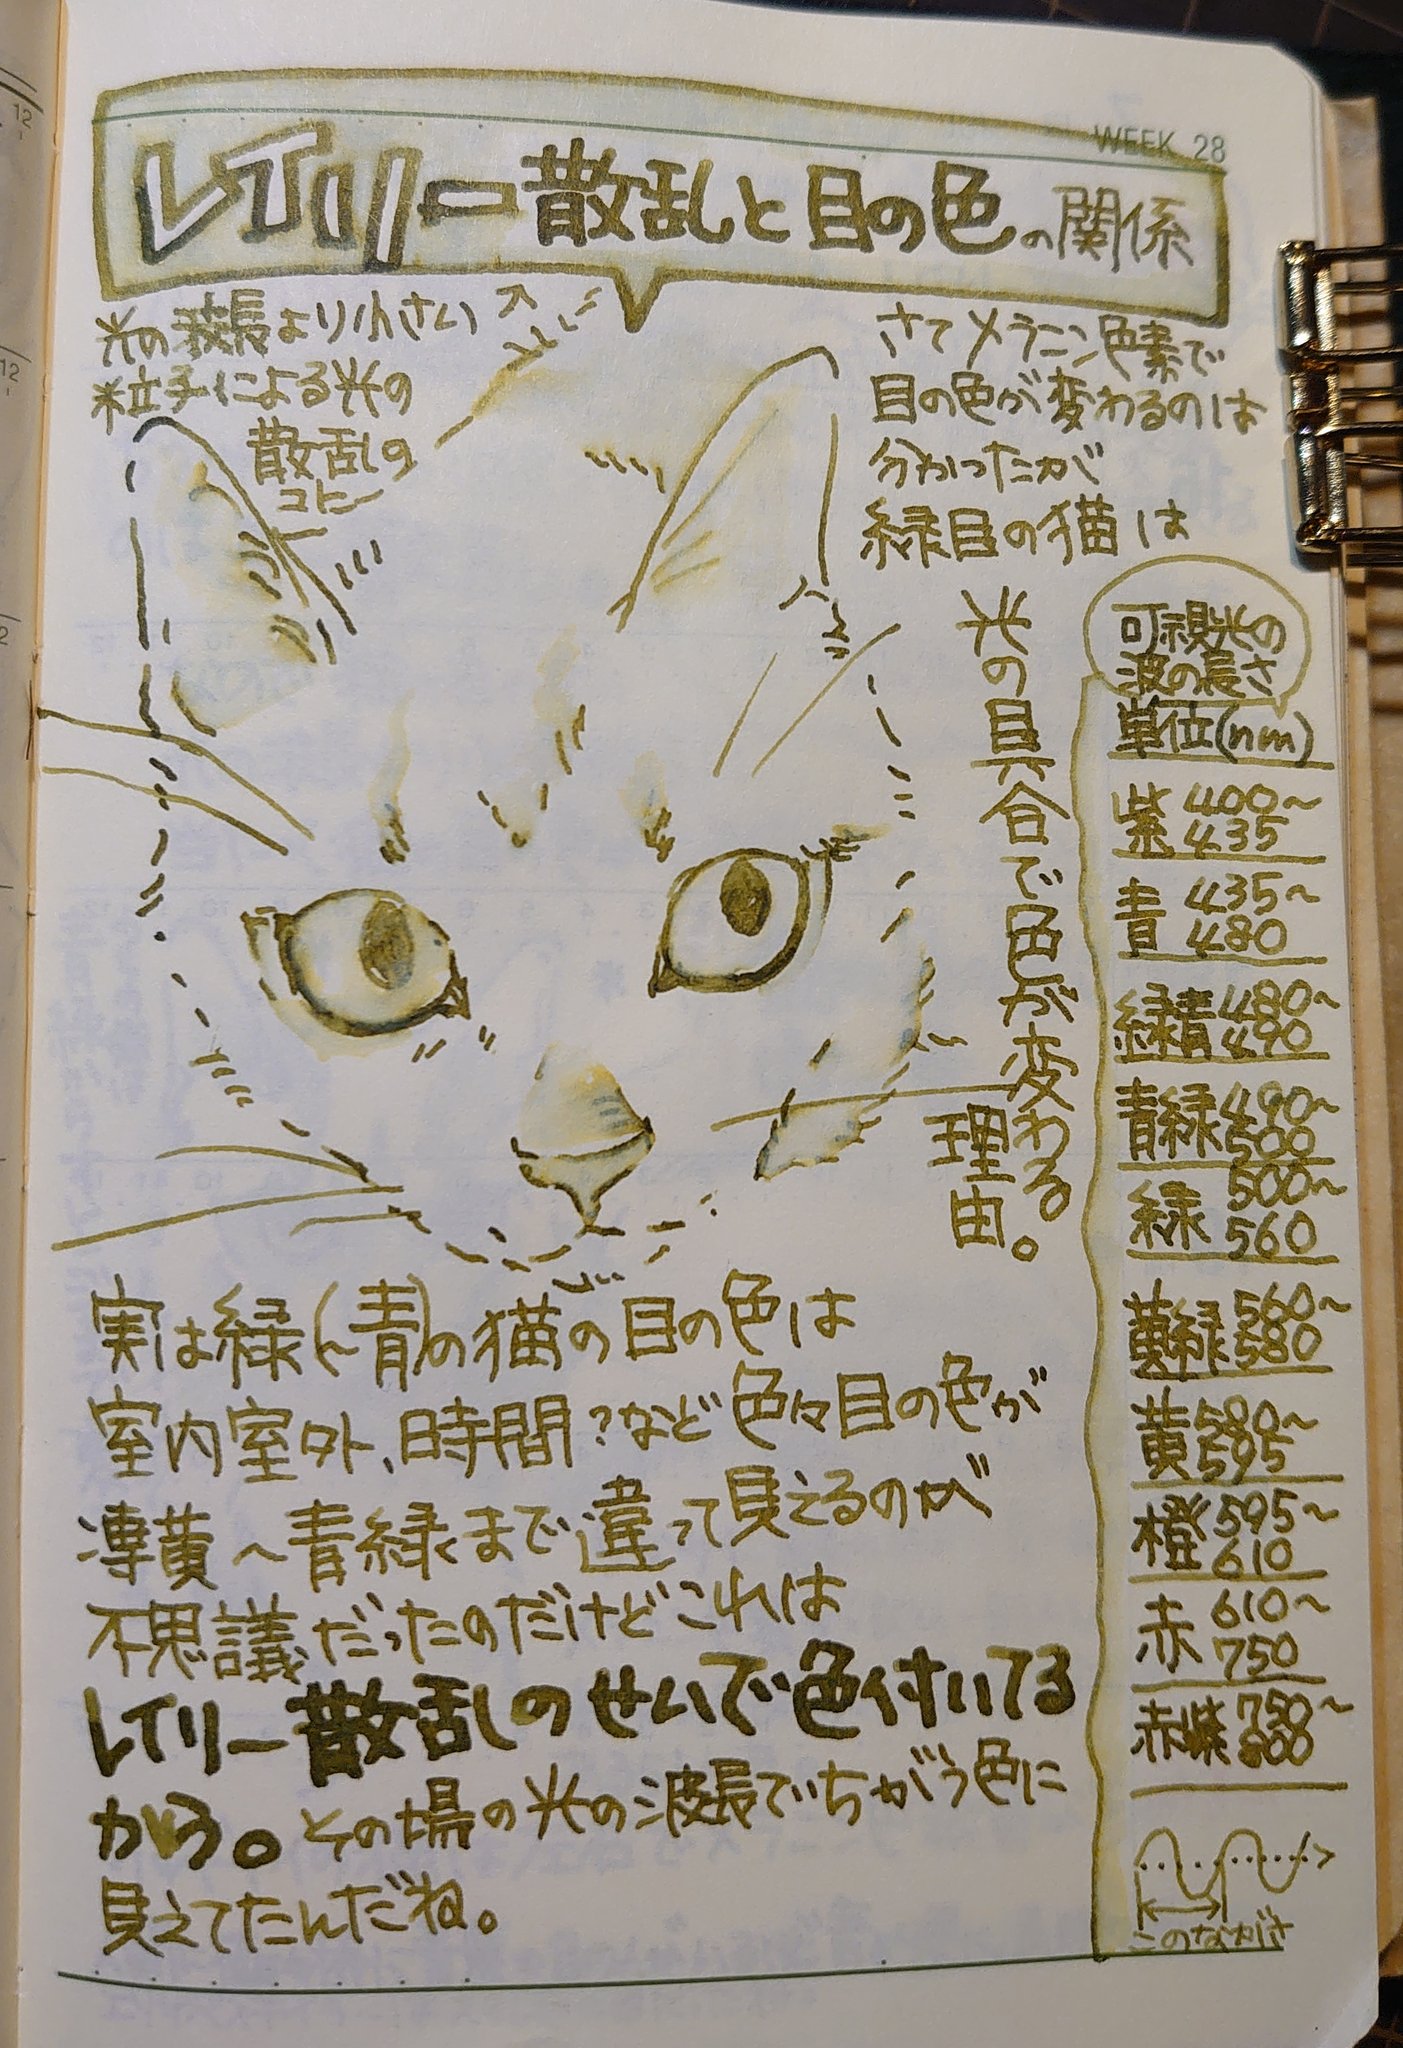 WEEK 28
レイリー散乱と目の色の関係
光の波長より小さい
粒子による光の
散乱の
コト
さてメラニン色素で
目の色が変わるのは
分かったが
緑目の猫は
光の具合で色が変わる
理由。
可視光の
波の長さ
単位(nm)
紫 400~
435
青 435~
480
緑青 480~
490
青緑 490~
500
緑 500~
560
黄緑 560~
580
黄 580~
595
橙 595~
610
赤 610~
750
赤紫 750~
800
このながさ
実は緑(~青)の猫の目の色は
室内室外、時間?など色々目の色が
薄黄~青緑まで違って見えるのが
不思議だったのだけどこれは
レイリー散乱のせいで色付いてる
から。その場の光の波長でちがう色に
見えてたんだね。
12
12
2